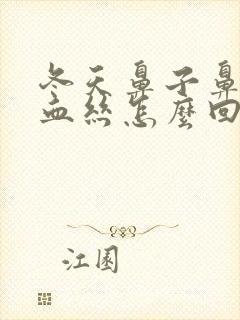 冬天鼻子鼻
血丝怎麼回
江園